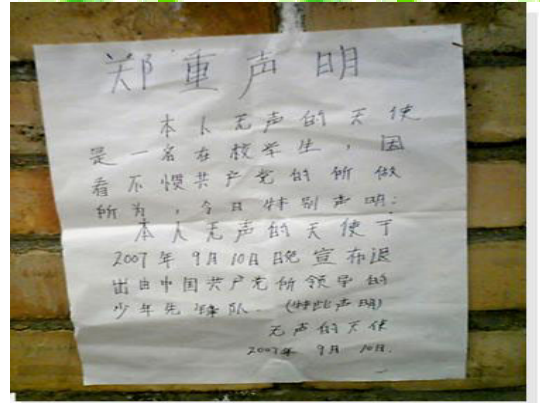 郑重声明
本人无声的天使
是一名在校学生，因
看不惯共产党的所做
所为，今日特别声明：
本人无声的天使于
2007年9月10日晚宣布退
出由中国共产党所领导的
少年先锋队。(特此声明)
无声的天使
2007年9月10日.